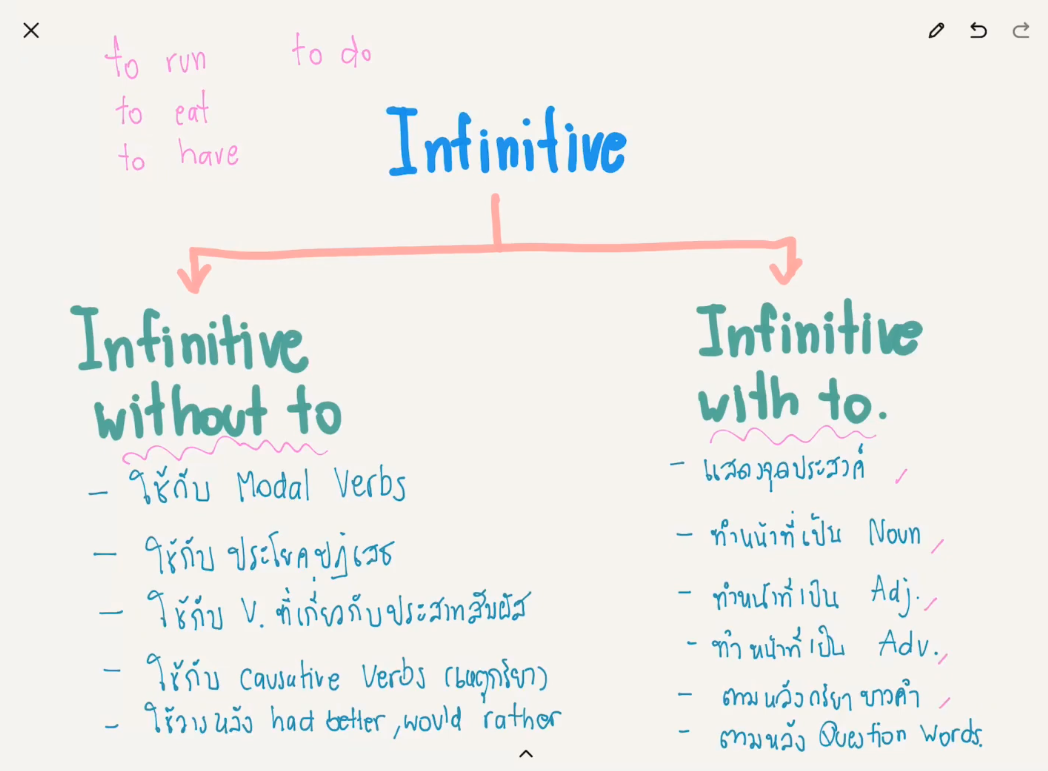 to run
to do
to eat
to have
Infinitive
Infinitive
without to
- ใช้กับ Modal Verbs
- ใช้กับ ประโยคปฏิเสธ
- ใช้กับ V. ที่เกี่ยวกับประสาทสัมผัส
- ใช้กับ Causative Verbs (เหตุกริยา)
- ใช้วางหลัง had better, would rather
Infinitive
with to.
- แสดงจุดประสงค์
- ทำหน้าที่เป็น Noun
- ทำหน้าที่เป็น Adj.
- ทำหน้าที่เป็น Adv.
- ตามหลังกริยาบางคำ
- ตามหลัง Question Words.